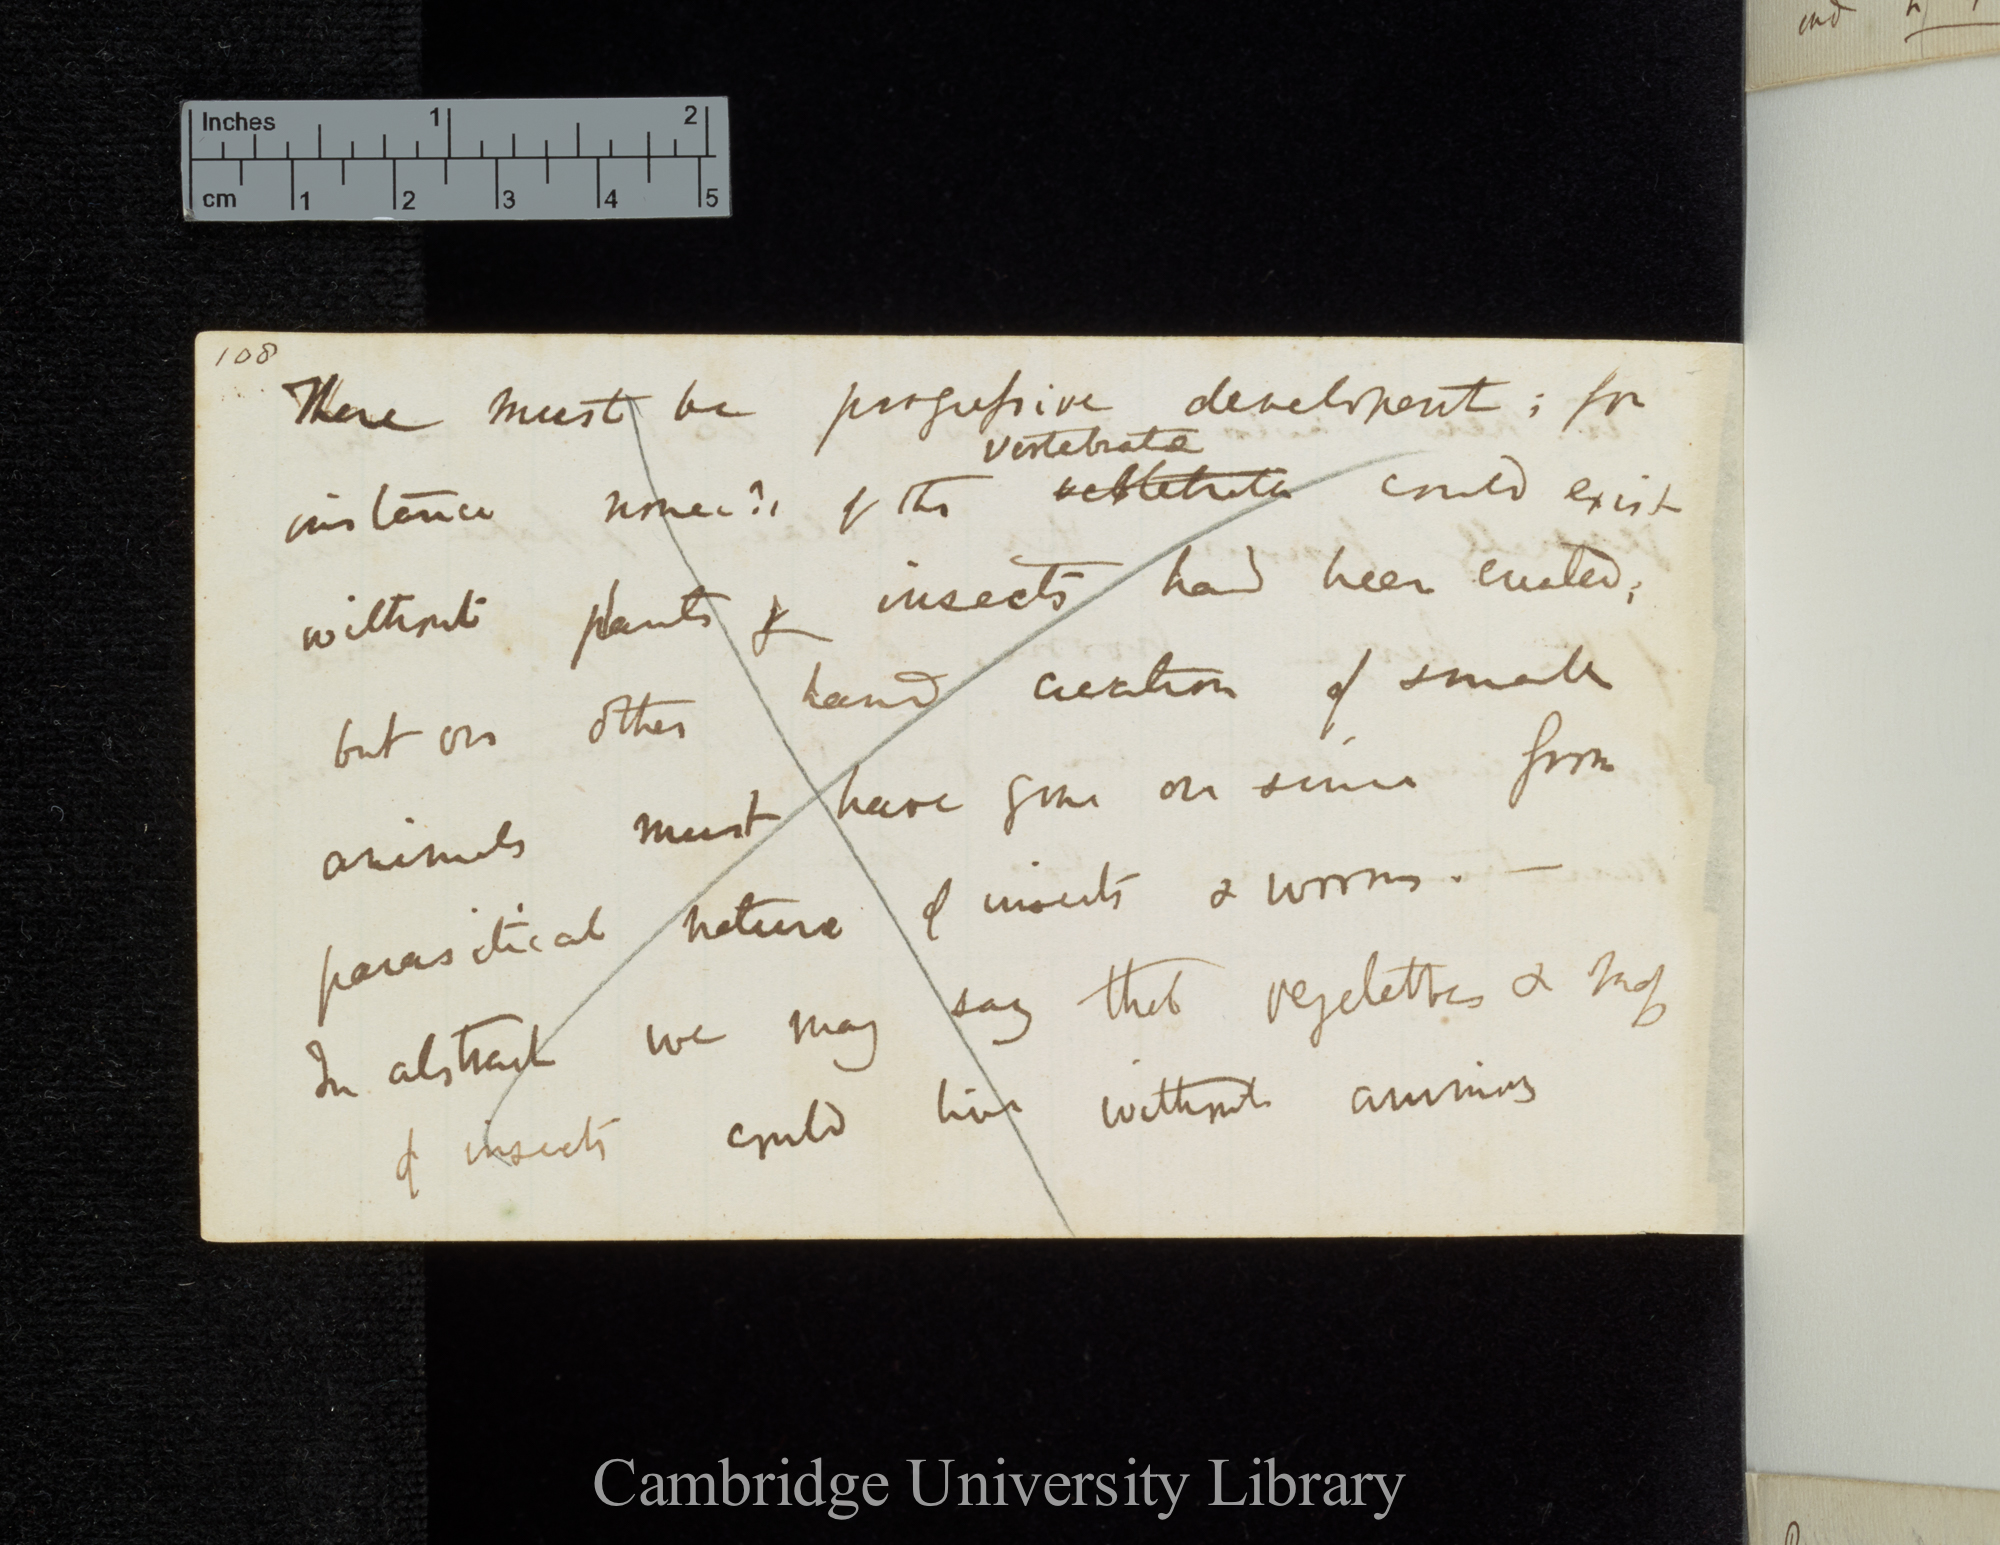 Inches 1 2
cm 1 2 3 4 5
108
There must be progressive development; for
vertebrate
instance none?; of the vertebrate could exist
without plants & insects had been created;
but on other hand creation of small
animals must have gone on since from
parasitical nature of insects & worms. —
In abstract we may say that vegetables & mass
of insects could live without animals
ind
Cambridge University Library